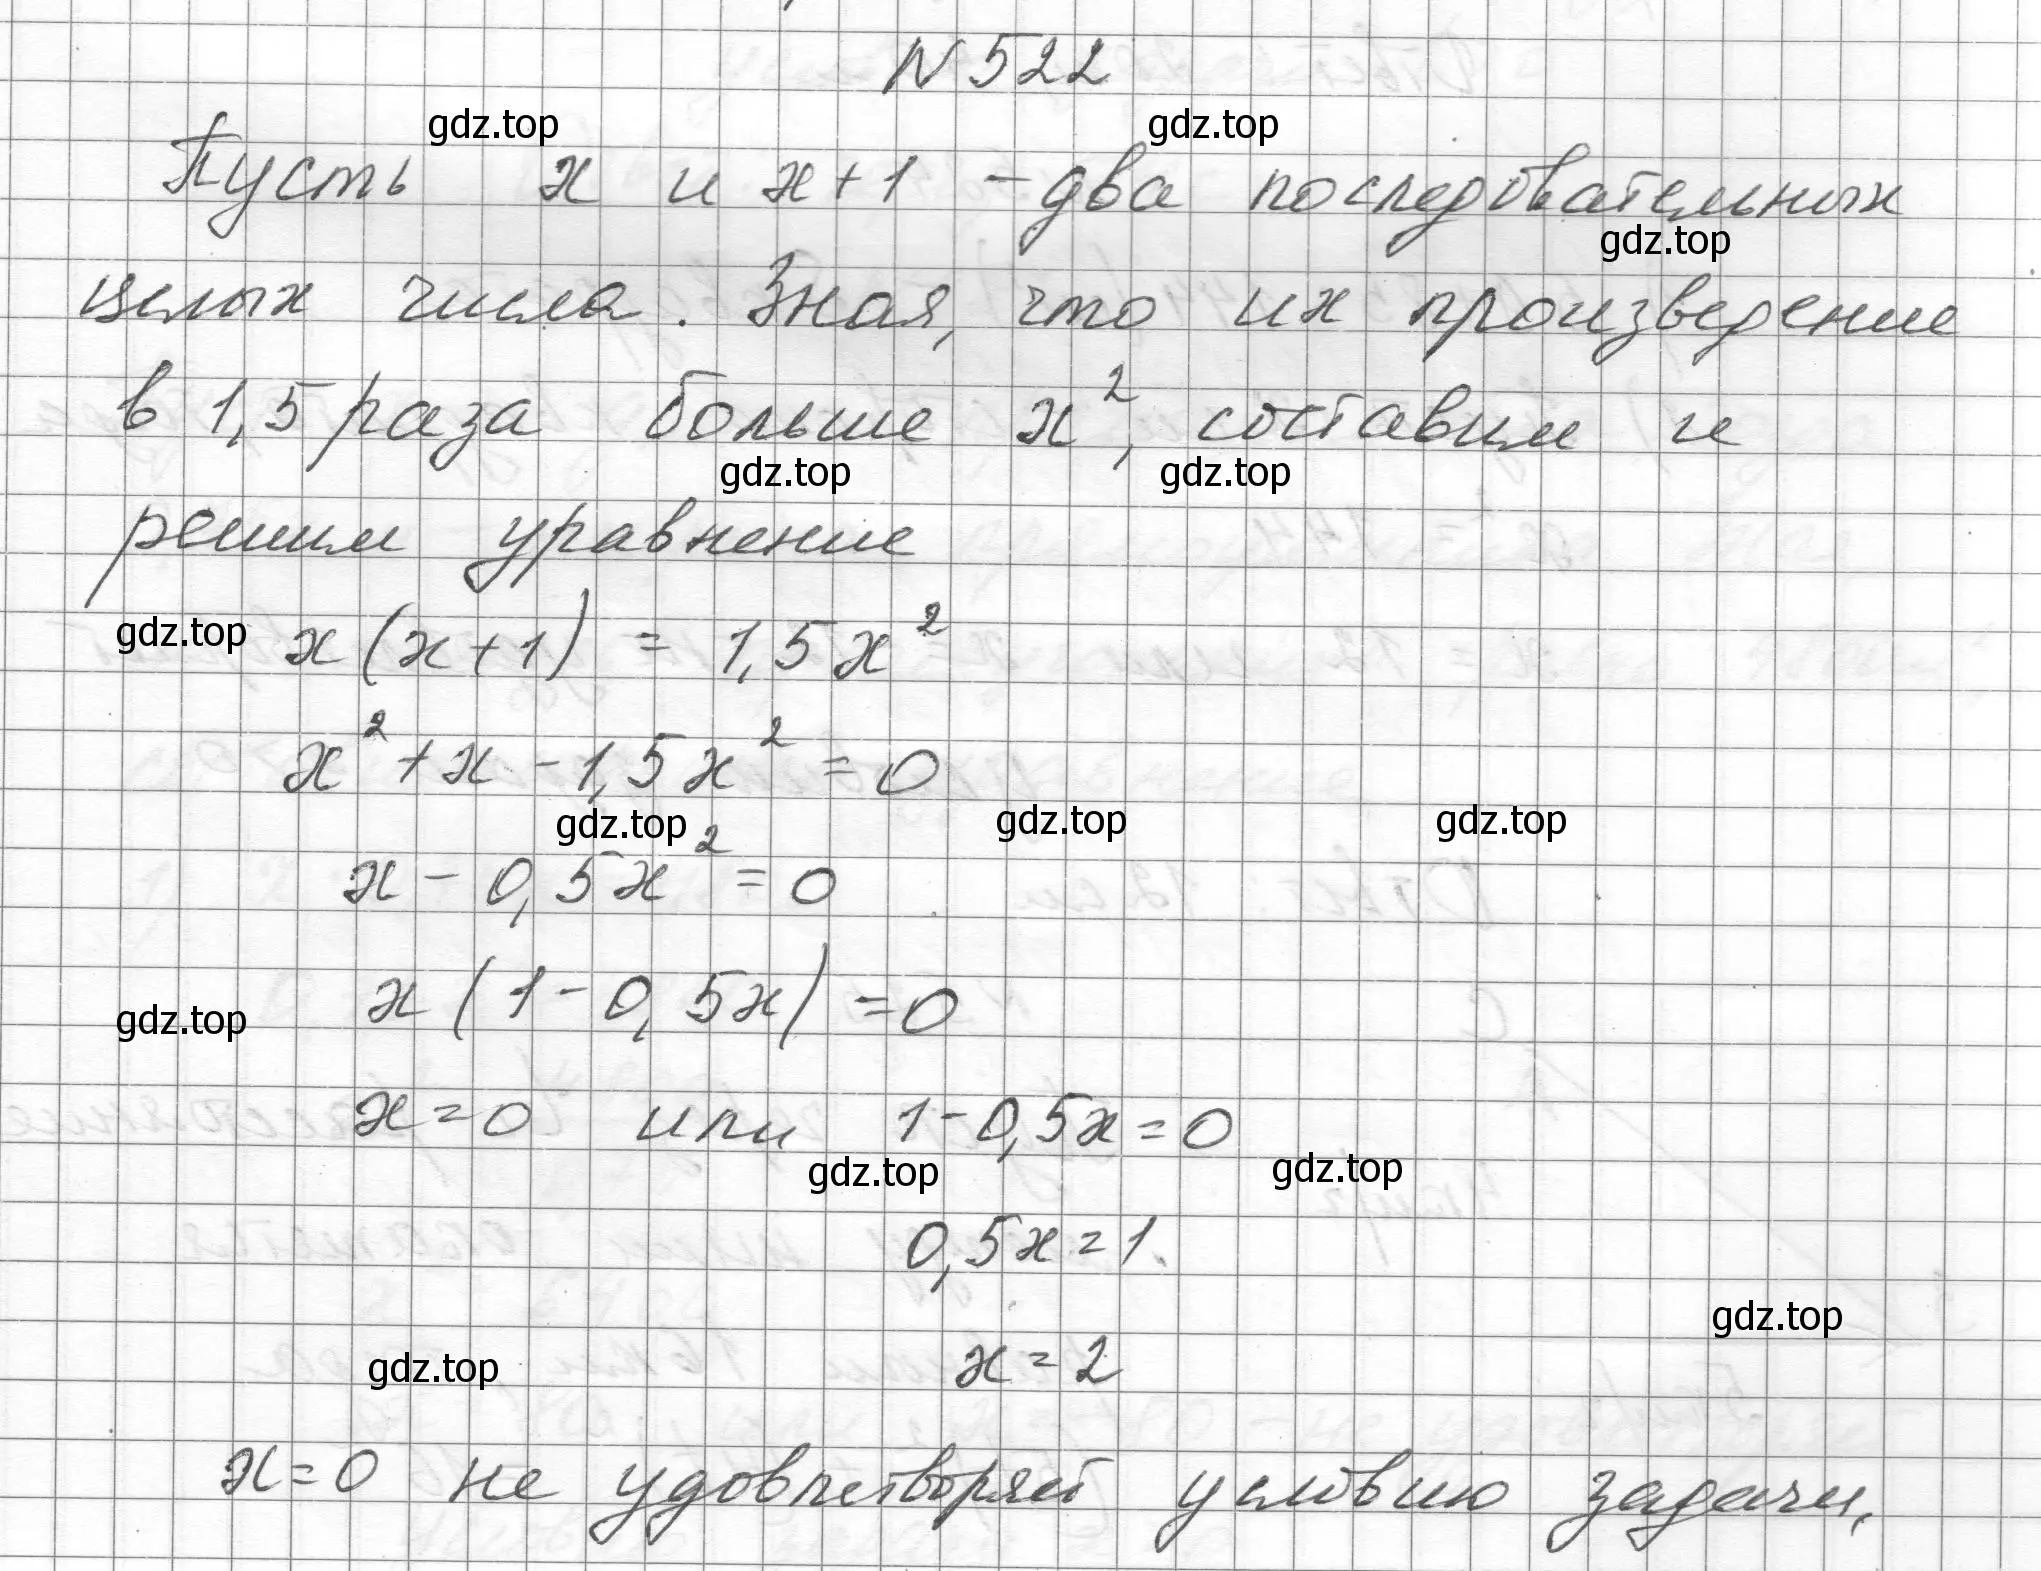 N 522
gdz.top gdz.top
Пусть x и x+1 – два последовательных
gdz.top
целых числа. Зная, что их произведение
в 1,5 раза больше x², составим и
gdz.top gdz.top
решим уравнение
gdz.top x(x+1) = 1,5x²
x² + x - 1,5x² = 0
gdz.top gdz.top gdz.top
x - 0,5x² = 0
gdz.top x(1 - 0,5x) = 0
x = 0 или 1 - 0,5x = 0
gdz.top gdz.top
0,5x = 1
gdz.top
gdz.top x = 2
x = 0 не удовлетворяет условию задачи,